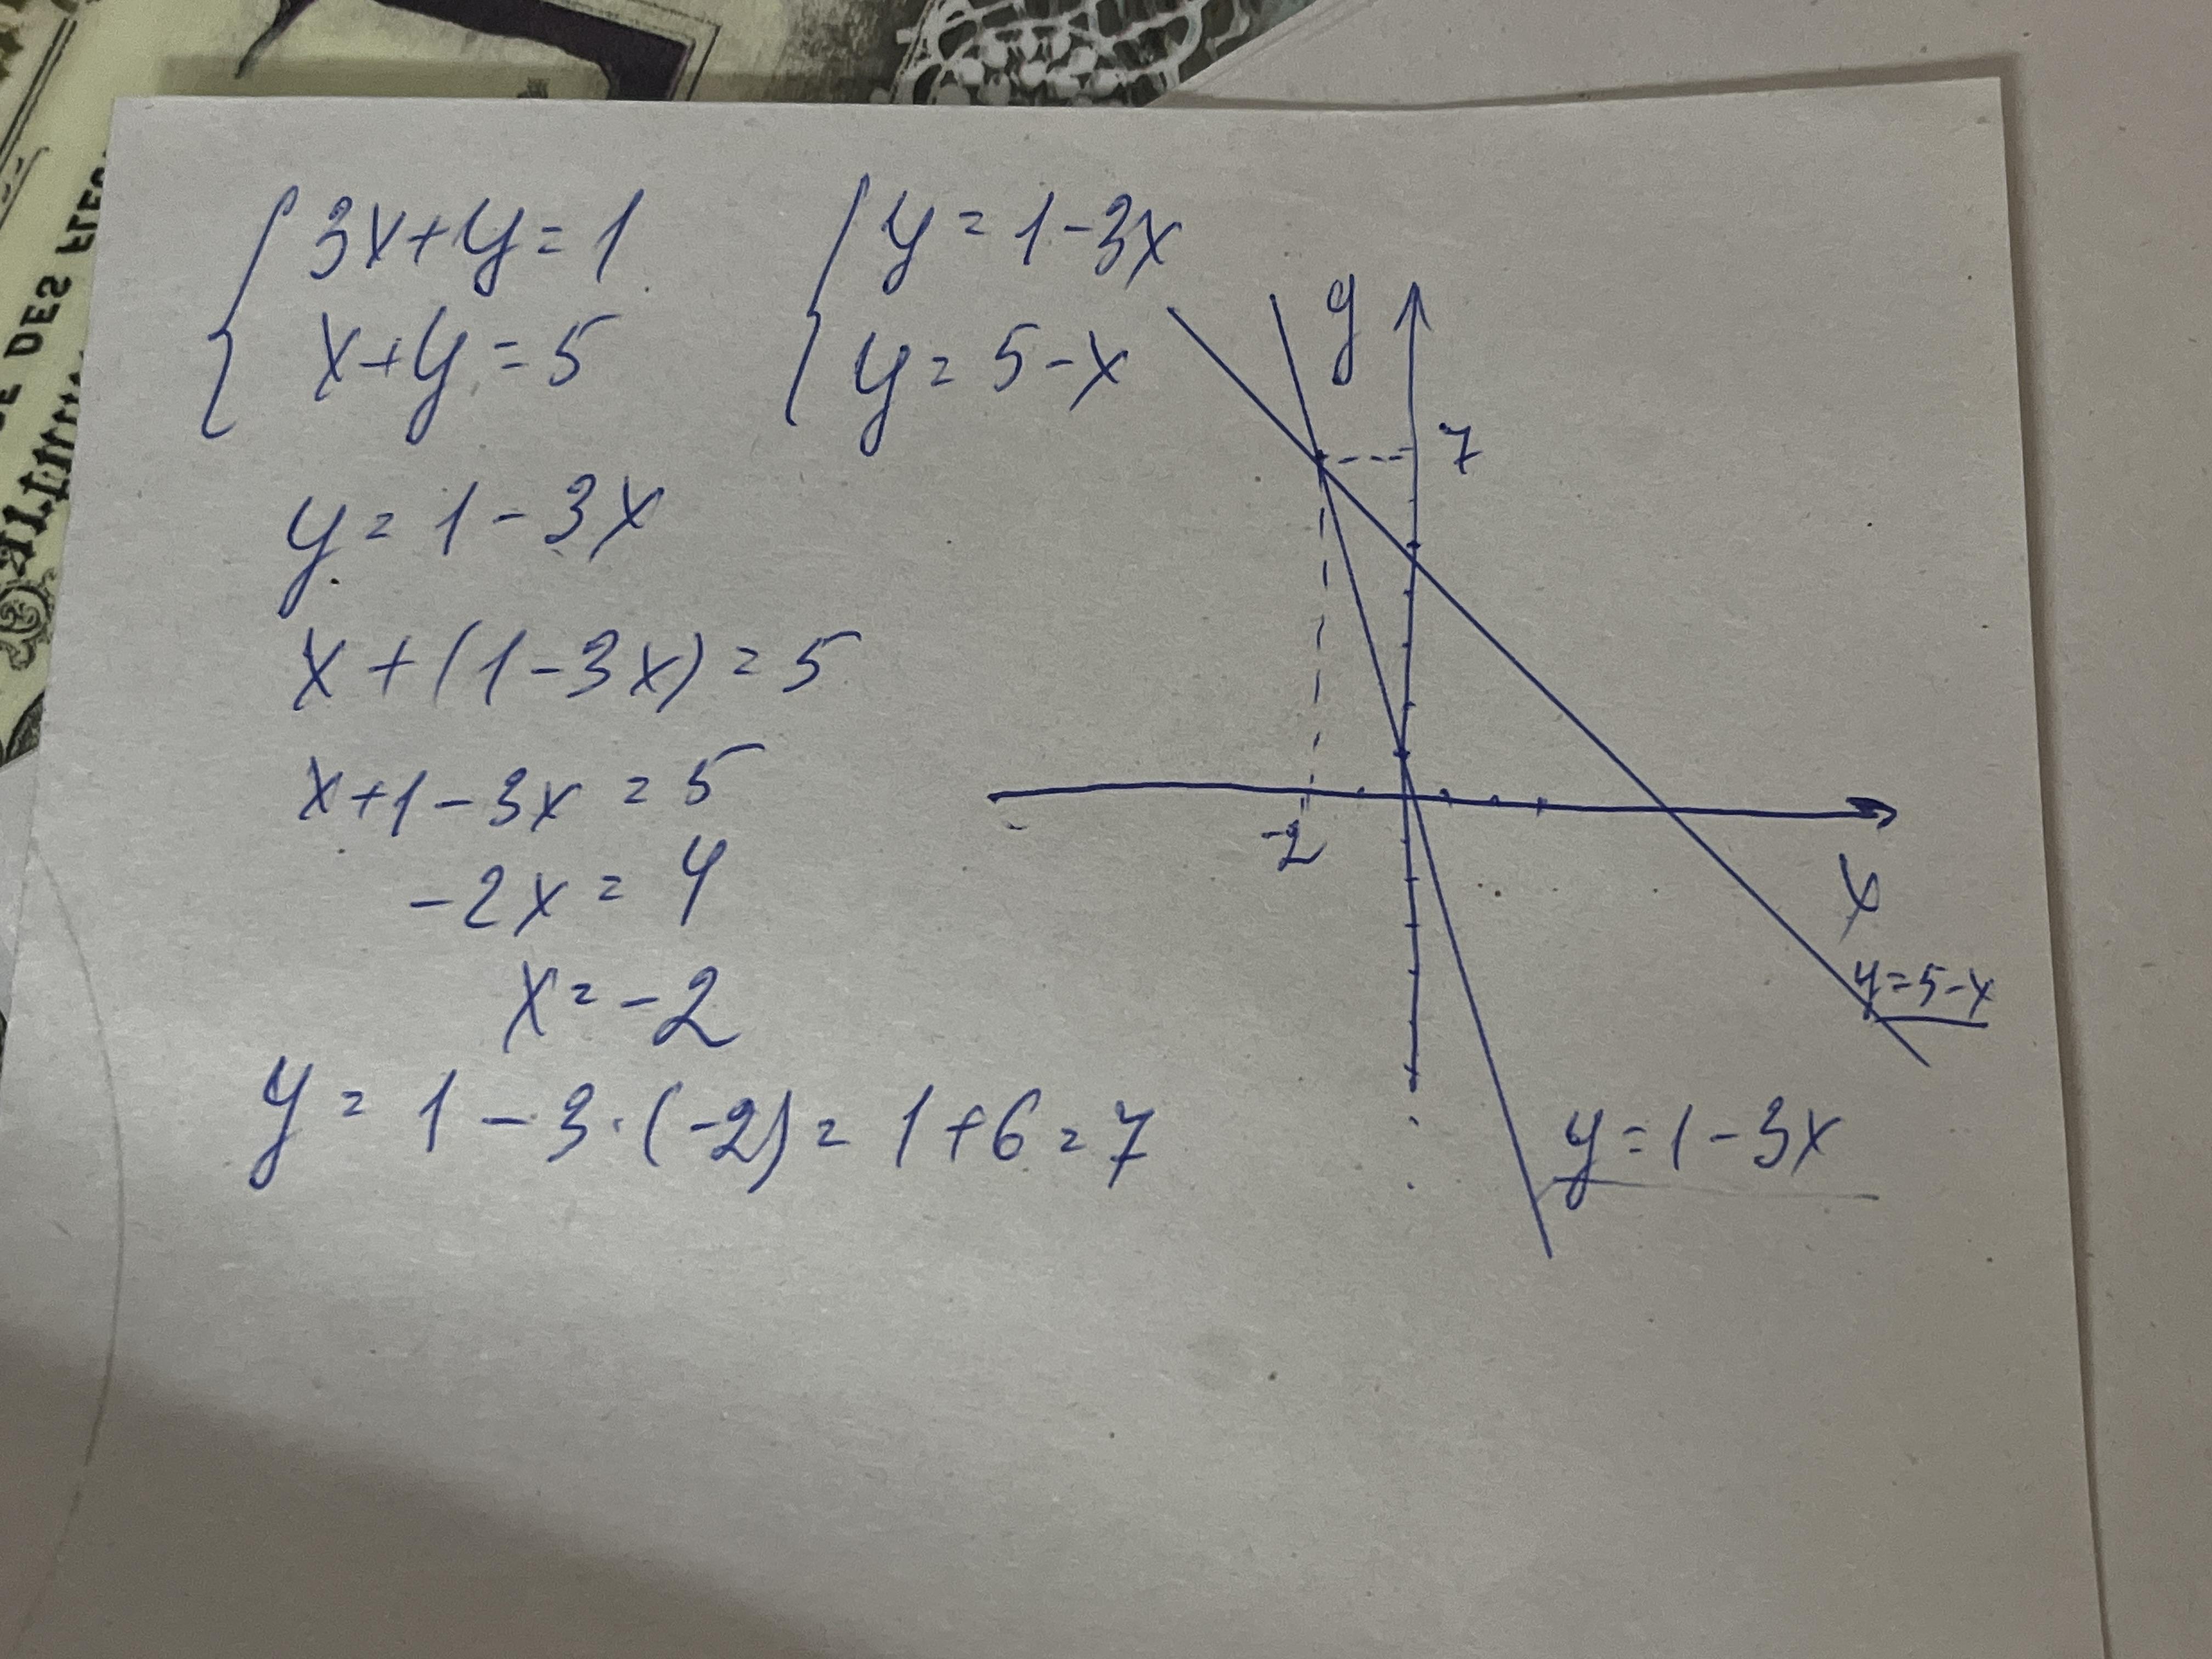 3x+y=1
x+y=5
y=1-3x
y=5-x
y=1-3x
x+(1-3x)=5
x+1-3x=5
-2x=4
x=-2
y=1-3·(-2)=1+6=7
y
7
-2
x
y=5-x
y=1-3x
DES